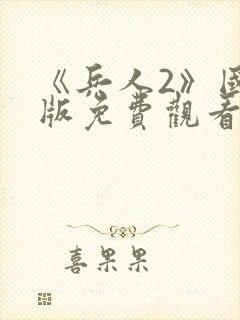 《兵人2》国
版免費觀看
喜果果